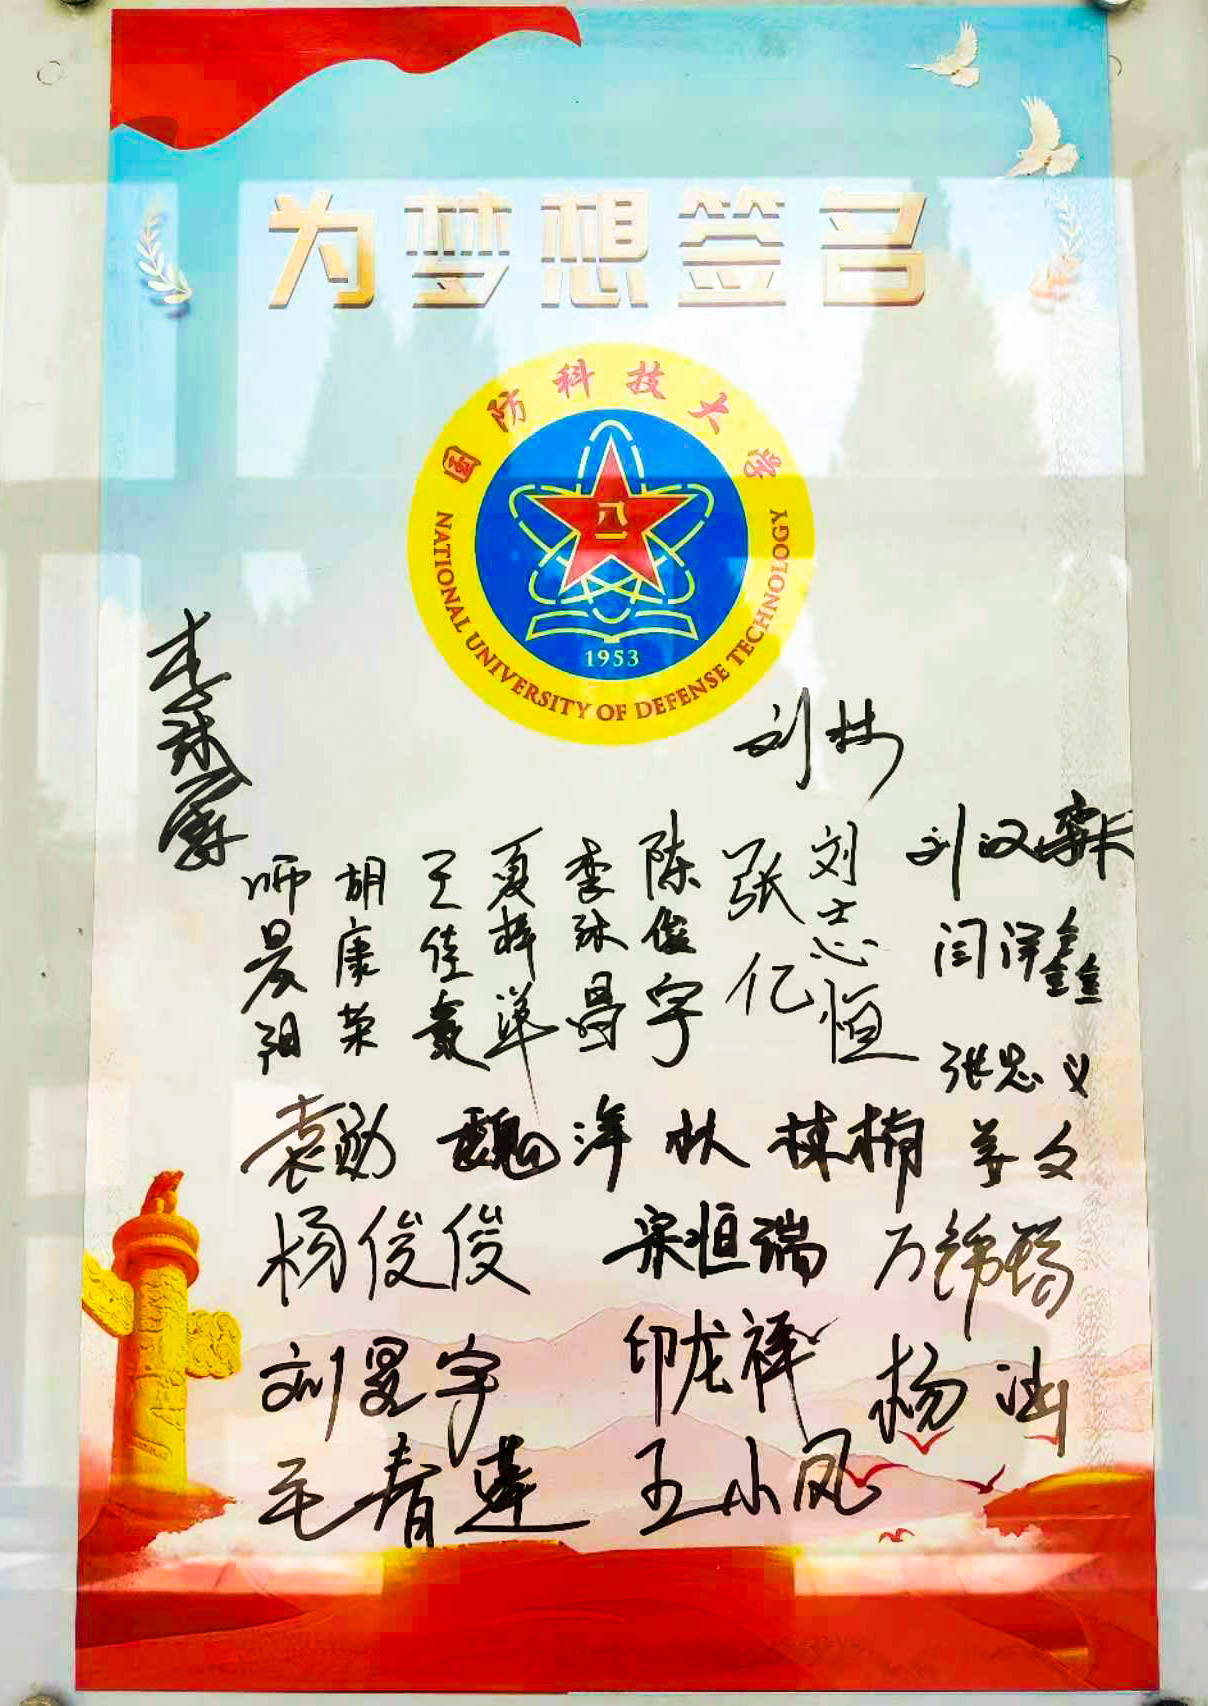 为梦想签名
国防科技大学
八一
1953
NATIONAL UNIVERSITY OF DEFENSE TECHNOLOGY
刘林
刘汉霖
师晨阳
胡康荣
王佳豪
夏梓
李沐昌
陈俊宇
张亿
刘志恒
闫泽鑫
张忠义
袁勋
魏洋
狄楠
姜文
杨俊俊
宋恒瑞
万锦
刘昱宇
印龙祥
杨涵
毛春莲
王小凤